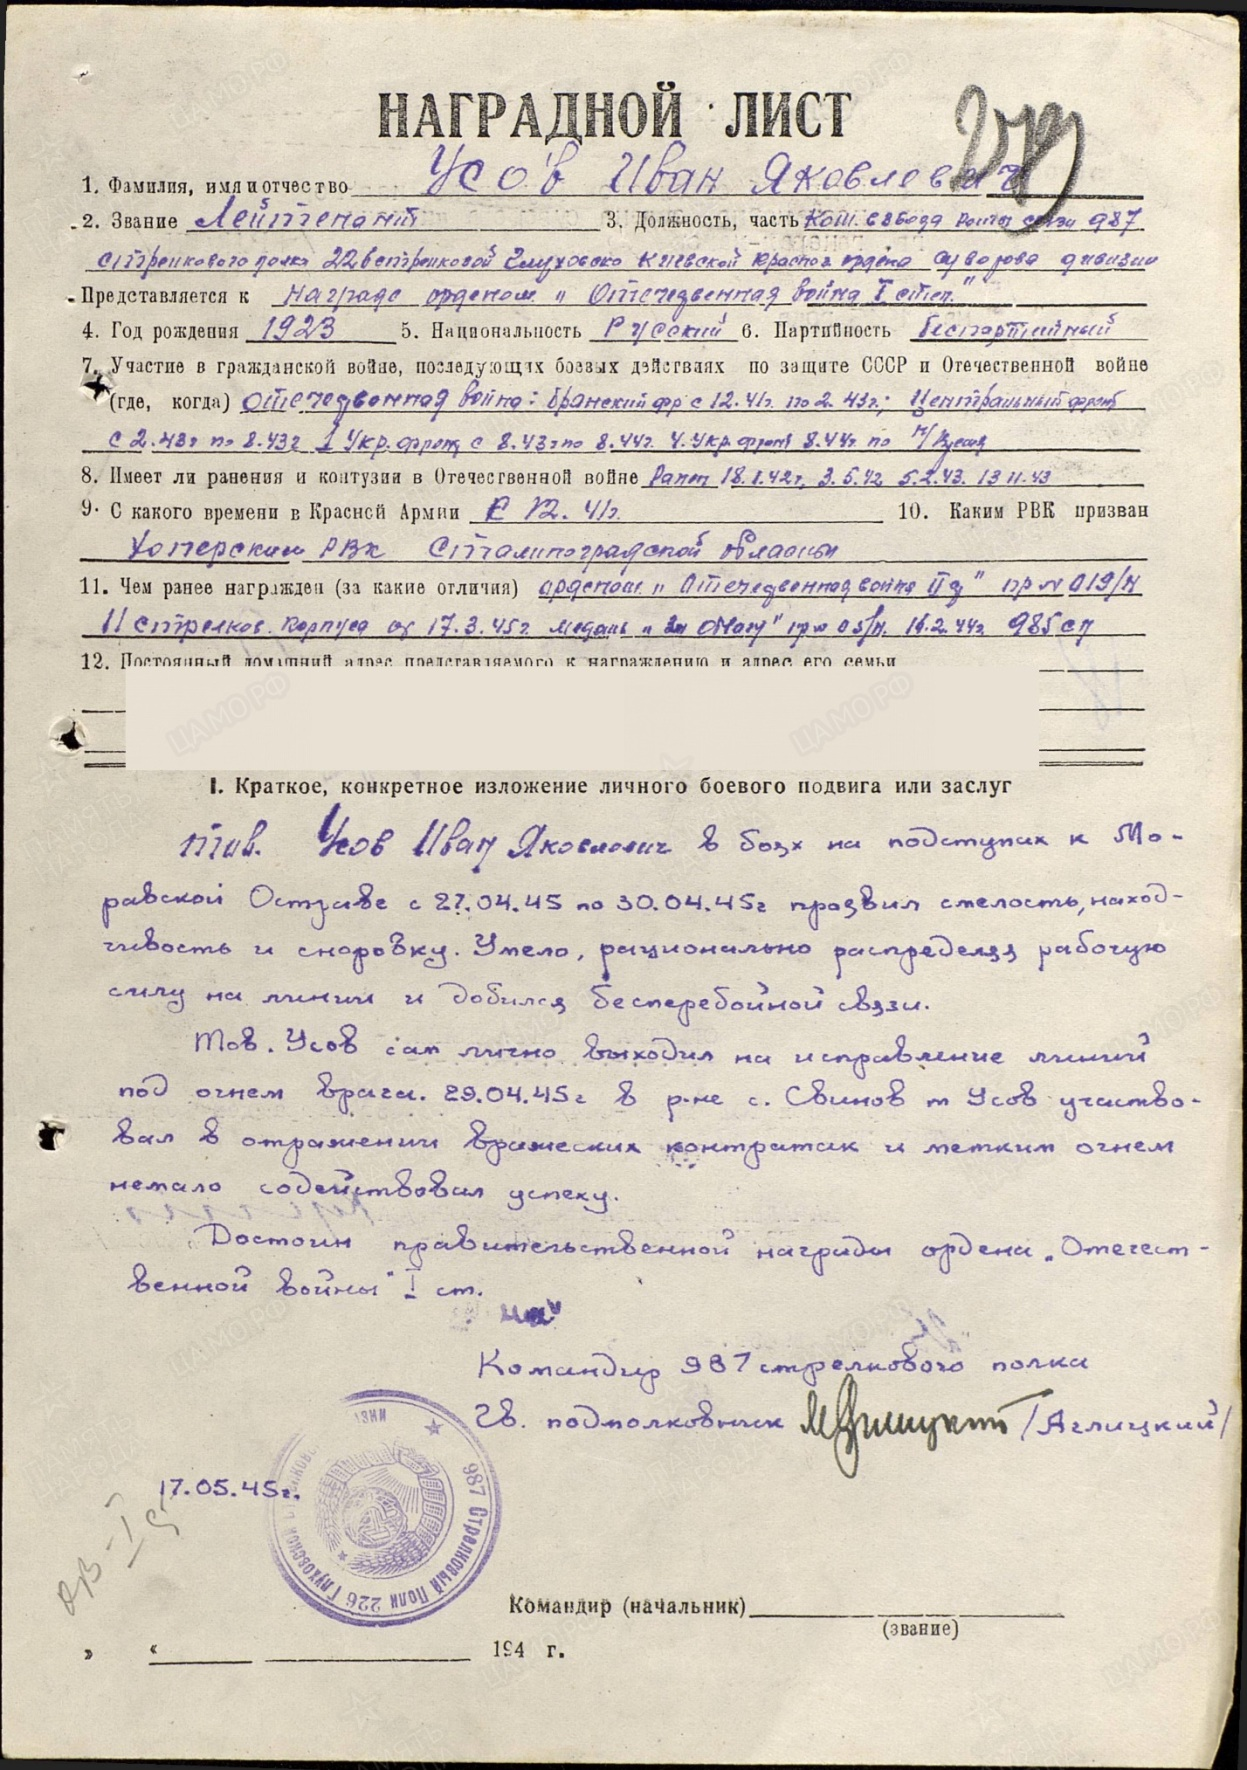 НАГРАДНОЙ ЛИСТ
1. Фамилия, имя и отчество Усов Иван Яковлевич
2. Звание Лейтенант 3. Должность, часть Ком. взвода роты связи 987
стрелкового полка 226 стрелковой Глуховско Киевской Красноз ордена Суворова дивизии
Представляется к Награде орденом „Отечедвенная война I степ."
4. Год рождения 1923 5. Национальность Русский 6. Партийность беспартийный
7. Участие в гражданской войне, последующих боевых действиях по защите СССР и Отечественной войне
(где, когда) Отечедвенная война: Бранский фр с 12.41г. по 2.43г.; Центральный фронт
с 2.43г по 8.43г 1 Укр. фронт с 8.43г по 8.44г. 4. Укр. фронт 8.44г. по
8. Имеет ли ранения и контузии в Отечественной войне Ранен 18.1.42г, 3.5.42 5.2.43. 13 11.43
9. С какого времени в Красной Армии С 12.41г. 10. Каким РВК призван
Хоперским РВК Сталинградской области
11. Чем ранее награжден (за какие отличия) орденом „Отечедвенная война II" пр № 019/н
11 стрелков. корпуса от 17.3.45г. медаль „За Отвагу" пр № 05/н. 16.2.44г. 985 сп
12. Постоянный домашний адрес представляемого к награждению и адрес его семьи
I. Краткое, конкретное изложение личного боевого подвига или заслуг
тов. Усов Иван Яковлевич в боях на подступах к Мо-
равской Остраве с 27.04.45 по 30.04.45г проявил смелость, наход-
чивость и сноровку. Умело, рационально распределяя рабочую
силу на линии и добился бесперебойной связи.
Тов. Усов сам лично выходил на исправление линий
под огнем врага. 29.04.45г в р-не с. Свинов т Усов участво-
вал в отражении вражеских контратак и метким огнем
немало содействовал успеху.
Достоин правительственной награды ордена „Отечест-
венной войны" I ст.
Командир 987 стрелкового полка
Гв. подполковник /Аглицкий/
17.05.45г.
987 Стрелковый Полк 226 Глуховской
ОВ-I ст
Командир (начальник)
(звание)
" " 194 г.